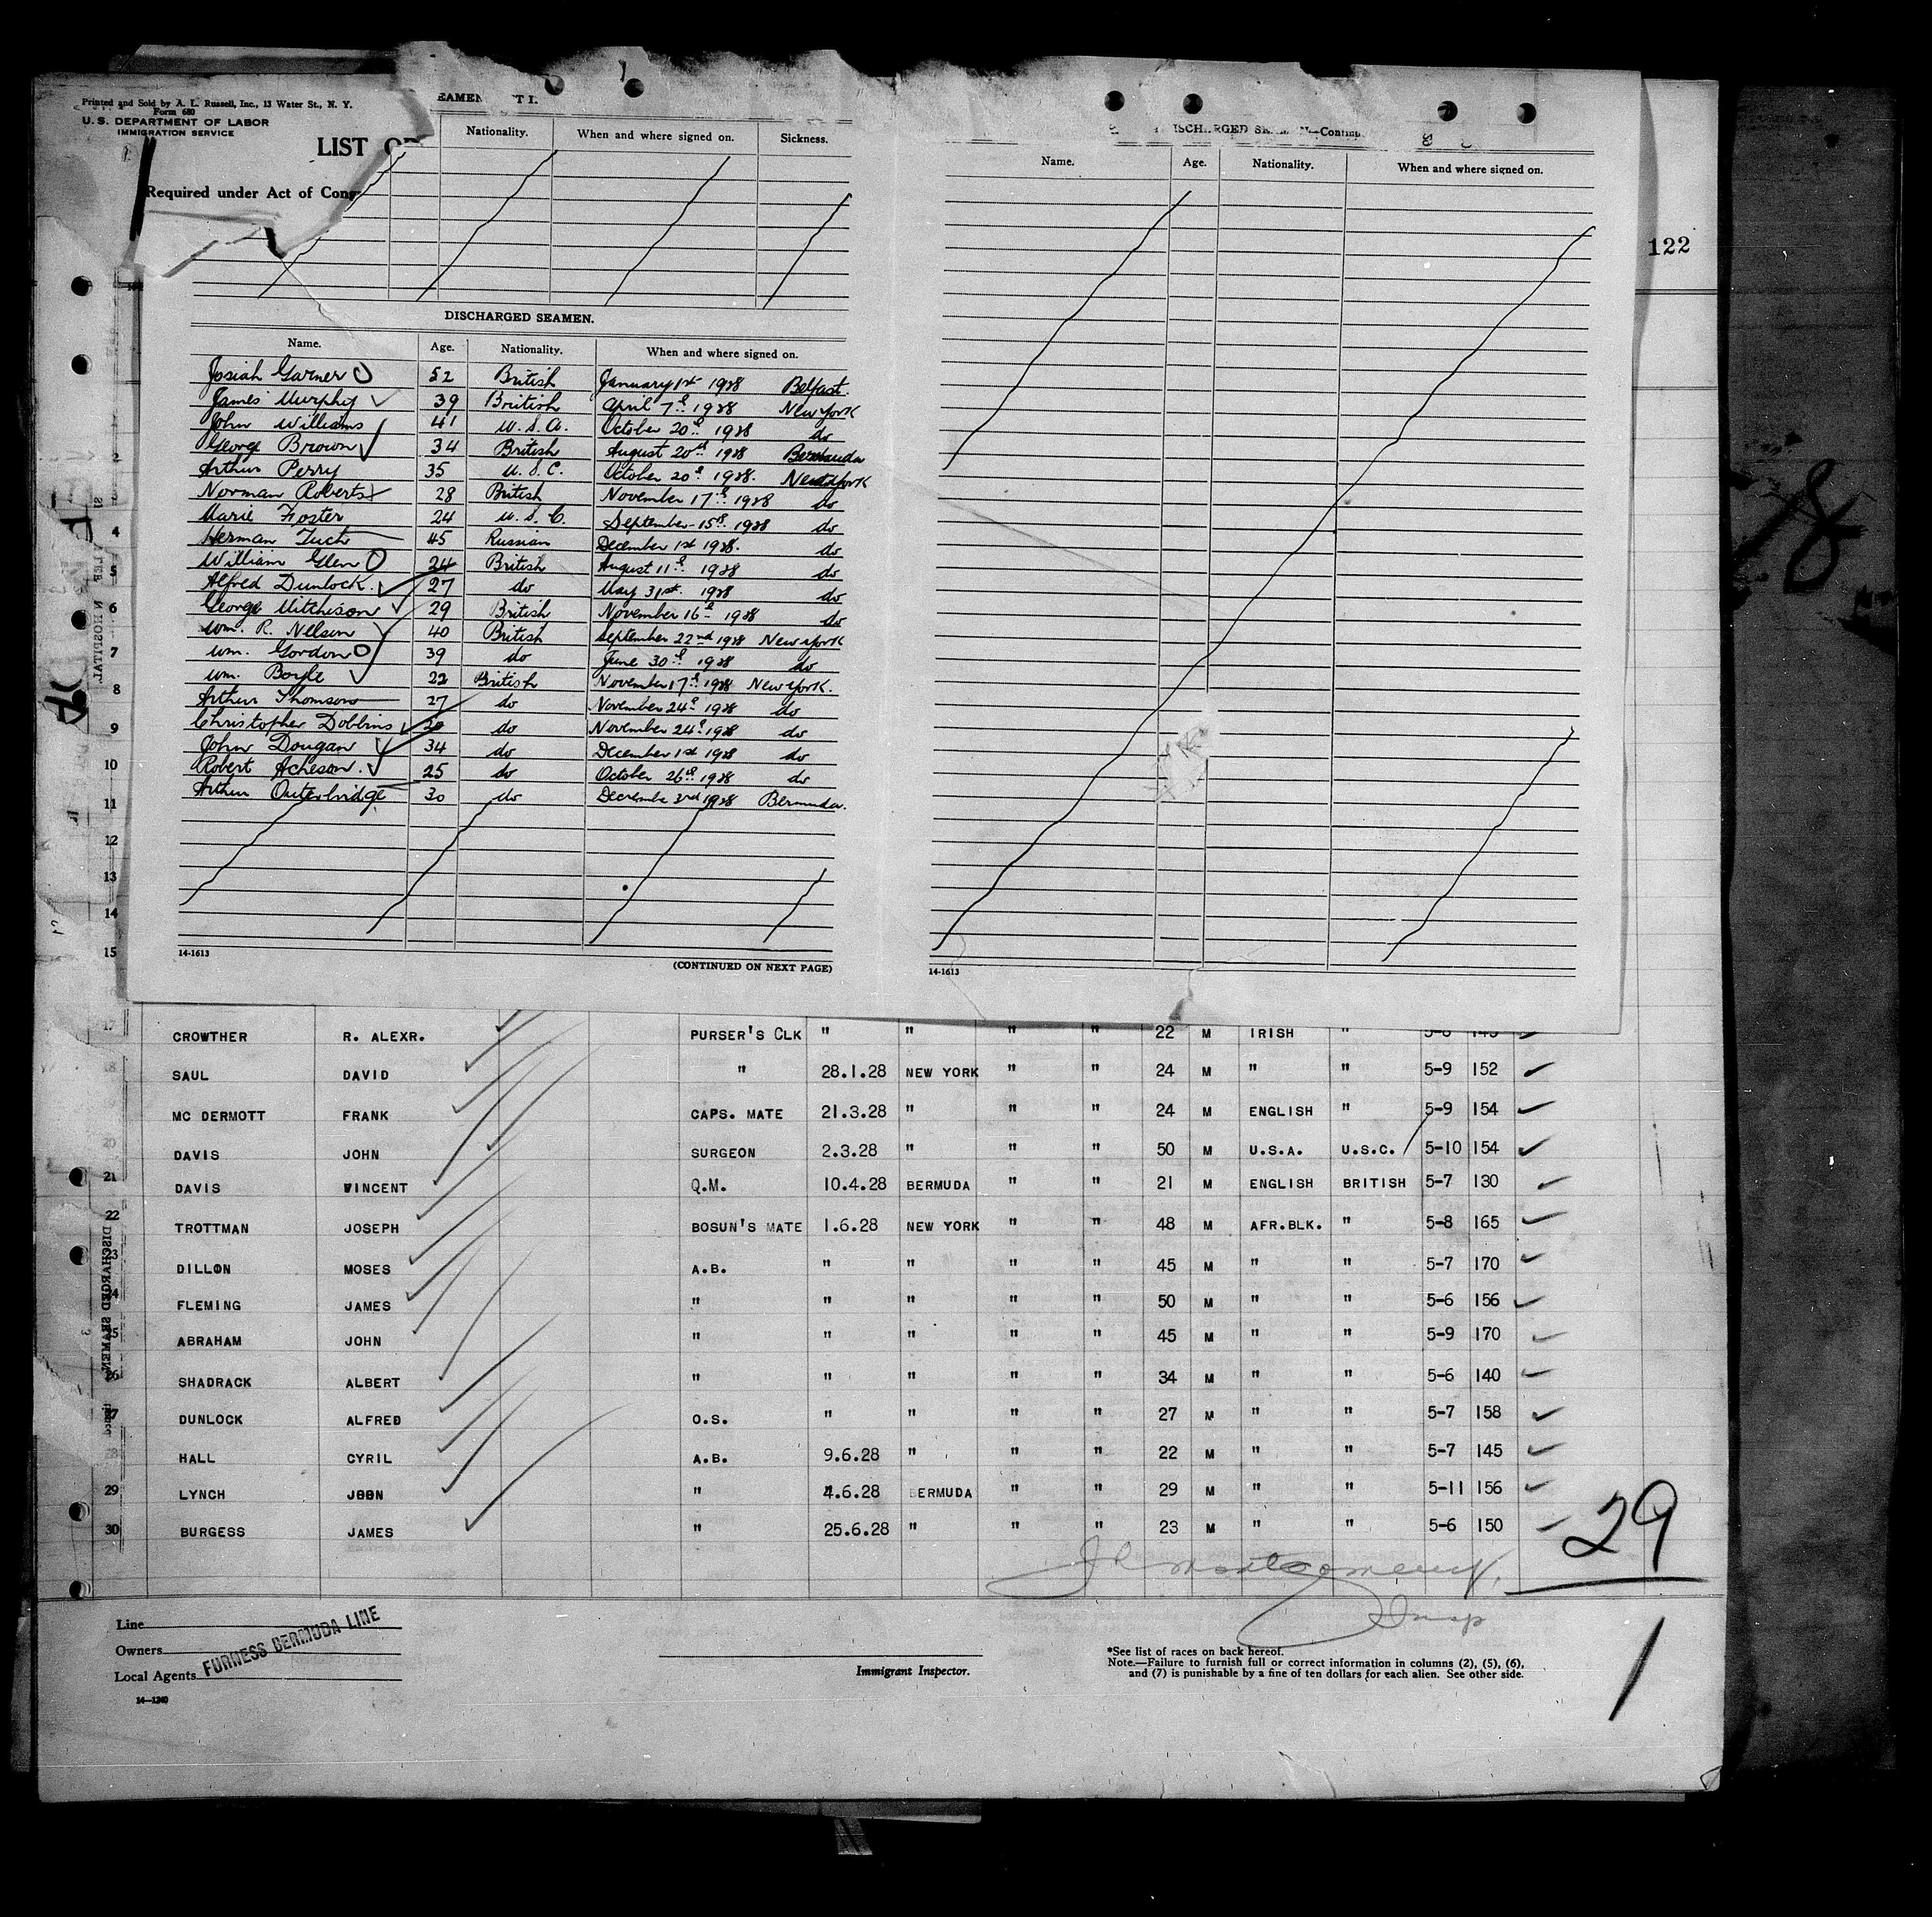 Printed and Sold by A. L. Russell, Inc., 13 Water St., N. Y.
Form 680
U. S. DEPARTMENT OF LABOR
IMMIGRATION SERVICE
LIST
Required under Act of
Nationality. When and where signed on. Sickness.
DISCHARGED SEAMEN.
Name. Age. Nationality. When and where signed on.
Josiah Garner 52 British January 1st 1928 Belfast.
James Murphy 39 British April 7th 1928 New York
John Williams 41 U.S.A. October 20th 1928 do
George Brown 34 British August 20th 1928 Bermuda
Arthur Perry 35 U.S.C. October 20th 1928. New York
Norman Roberts 28 British November 17th 1928 do
Marie Foster 24 U.S.C. September 15th 1928 do
Herman Tuch 45 Russian December 1st 1928. do
William Glen 24 British August 11th 1928 do
Alfred Dunlock. 27 do May 31st. 1928 do
George Mitchison 29 British November 16th 1928 do
Wm. R. Nelson 40 British September 22nd 1928 New York
Wm. Gordon 39 do June 30th 1928 do
Wm. Boyle 22 British November 17th 1928 New York.
Arthur Thomson 27 do November 24th 1928 do
Christopher Dobbins 20 do November 24th 1928 do
John Dougan 34 do December 1st 1928 do
Robert Acheson. 25 do October 26th 1928 do
Arthur Outerbridge 30 do December 3rd 1928 Bermuda.
14-1613
(CONTINUED ON NEXT PAGE)
Name. Age. Nationality. When and where signed on.
14-1613
122
8
2
3
4
5
6
7
8
9
10
11
12
13
14
15
17 CROWTHER R. ALEXR. PURSER'S CLK " " " " 22 M IRISH "
18 SAUL DAVID " 28.1.28 NEW YORK " " 24 M " " 5-9 152
MC DERMOTT FRANK CAPS. MATE 21.3.28 " " " 24 M ENGLISH " 5-9 154
20 DAVIS JOHN SURGEON 2.3.28 " " " 50 M U.S.A. U.S.C. 5-10 154
21 DAVIS VINCENT Q.M. 10.4.28 BERMUDA " " 21 M ENGLISH BRITISH 5-7 130
22 TROTTMAN JOSEPH BOSUN'S MATE 1.6.28 NEW YORK " " 48 M AFR.BLK. " 5-8 165
DILLON MOSES A.B. " " " " 45 M " " 5-7 170
FLEMING JAMES " " " " " 50 M " " 5-6 156
ABRAHAM JOHN " " " " " 45 M " " 5-9 170
26 SHADRACK ALBERT " " " " " 34 M " " 5-6 140
DUNLOCK ALFRED O.S. " " " " 27 M " " 5-7 158
28 HALL CYRIL A.B. 9.6.28 " " " 22 M " " 5-7 145
29 LYNCH JOHN " 4.6.28 BERMUDA " " 29 M " " 5-11 156
30 BURGESS JAMES " 25.6.28 " " " 23 M " " 5-6 150
29
Montgomery,
Insp
1
Line
Owners
Local Agents
FURNESS BERMUDA LINE
14-1240
Immigrant Inspector.
*See list of races on back hereof.
Note.—Failure to furnish full or correct information in columns (2), (5), (6),
and (7) is punishable by a fine of ten dollars for each alien. See other side.
DISCHARGED SEAMEN